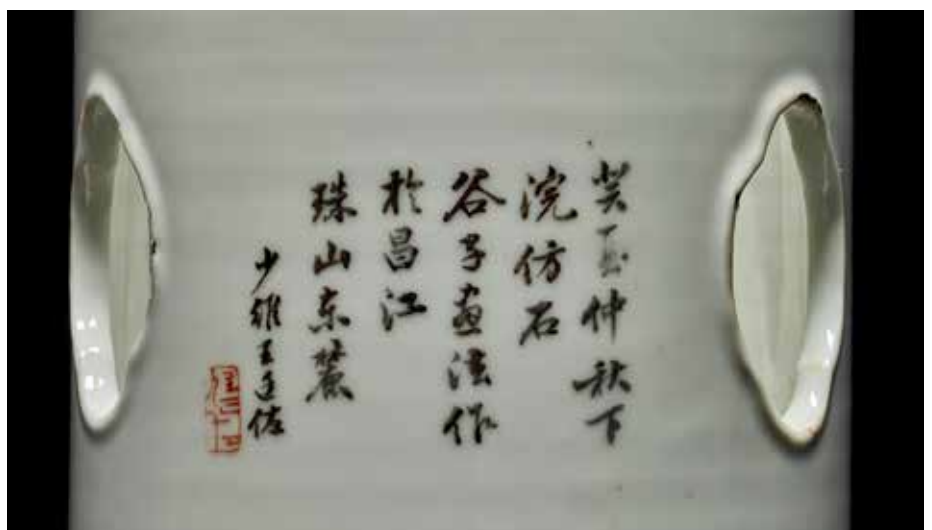 癸酉仲秋下
浣仿石
谷子畫法作
於昌江
珠山东麓
少維王廷佐